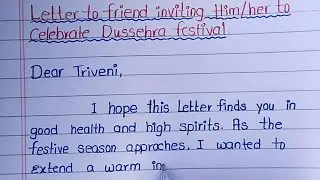 Letter to friend inviting Him/her to
Celebrate Dussehra festival
Dear Triveni,
I hope this Letter finds you in
good health and high spirits. As the
festive season approaches, I wanted to
extend a warm in